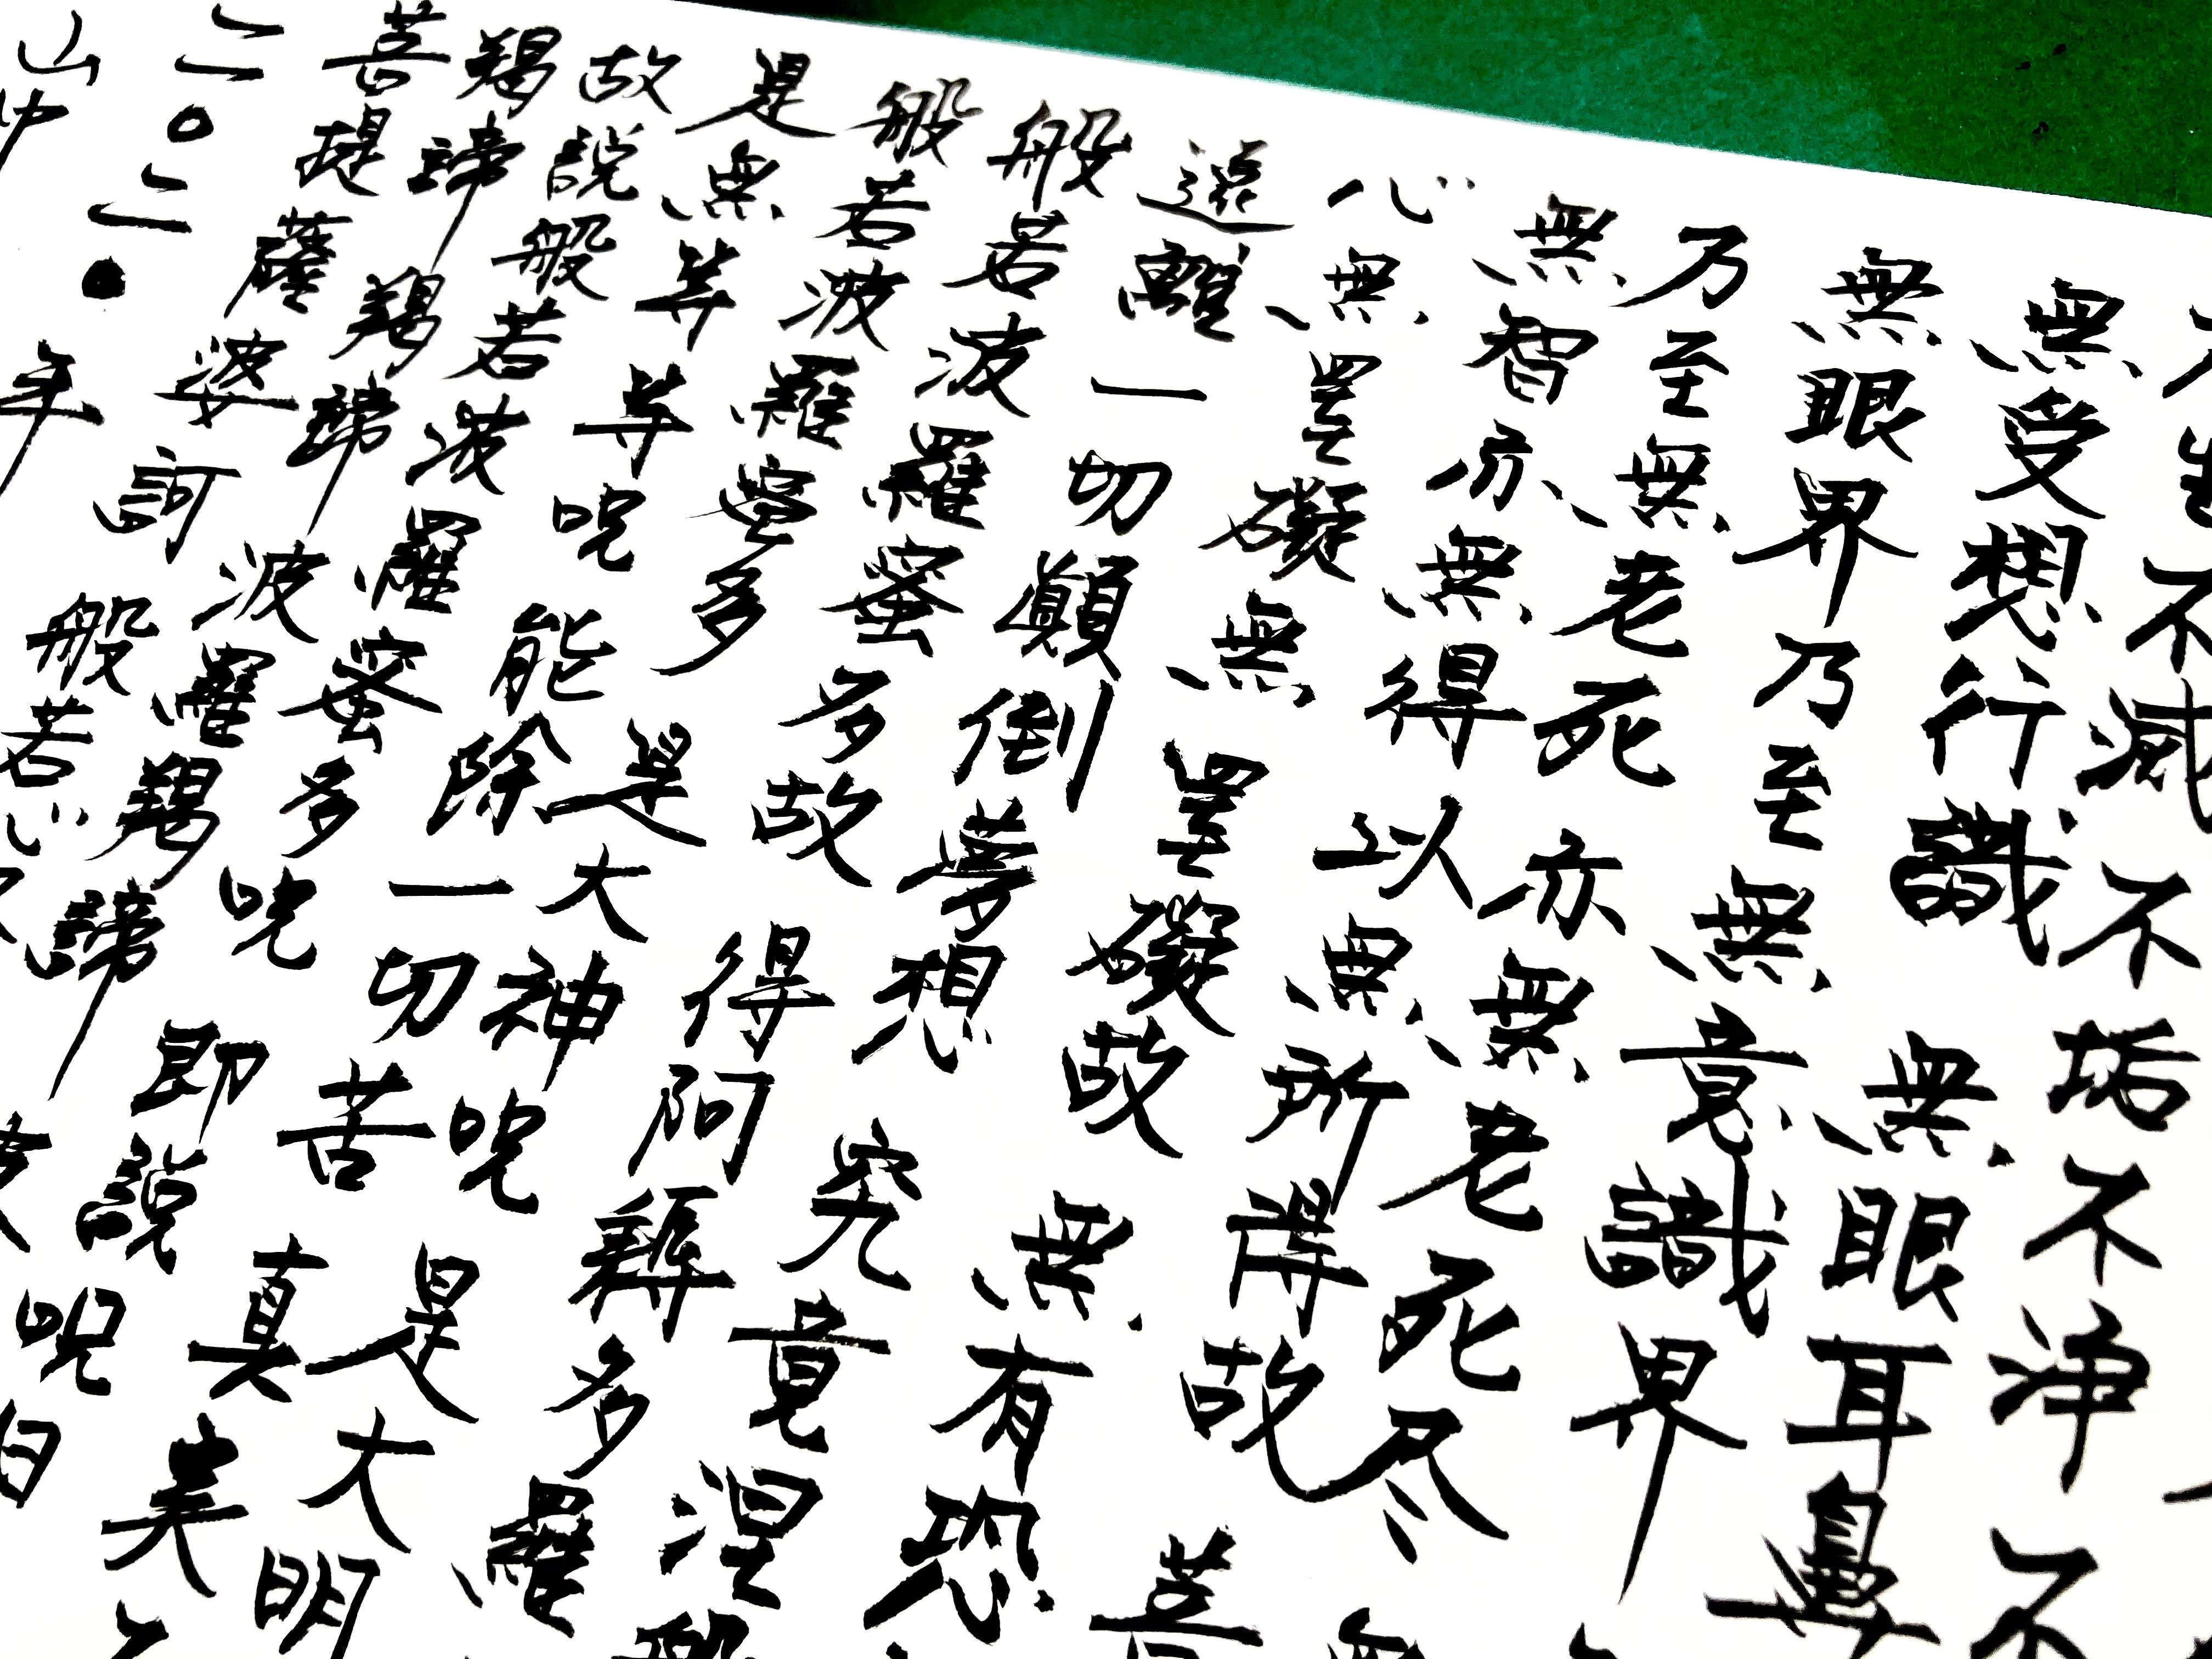 不生不滅不垢不净不
無受想行識無眼耳鼻
無眼界乃至無意識界
乃至無老死亦無老死尽
無智亦無得以無所得故菩
心無罣礙無罣礙故無有恐
遠離一切顛倒夢想究竟涅
般若波羅蜜多故得阿耨多羅
般若波羅蜜多是大神咒是大明
是無等等咒能除一切苦真実
故説般若波羅蜜多咒即説咒曰
羯諦羯諦波羅羯諦
菩提薩婆訶般若心
二〇二●年
山